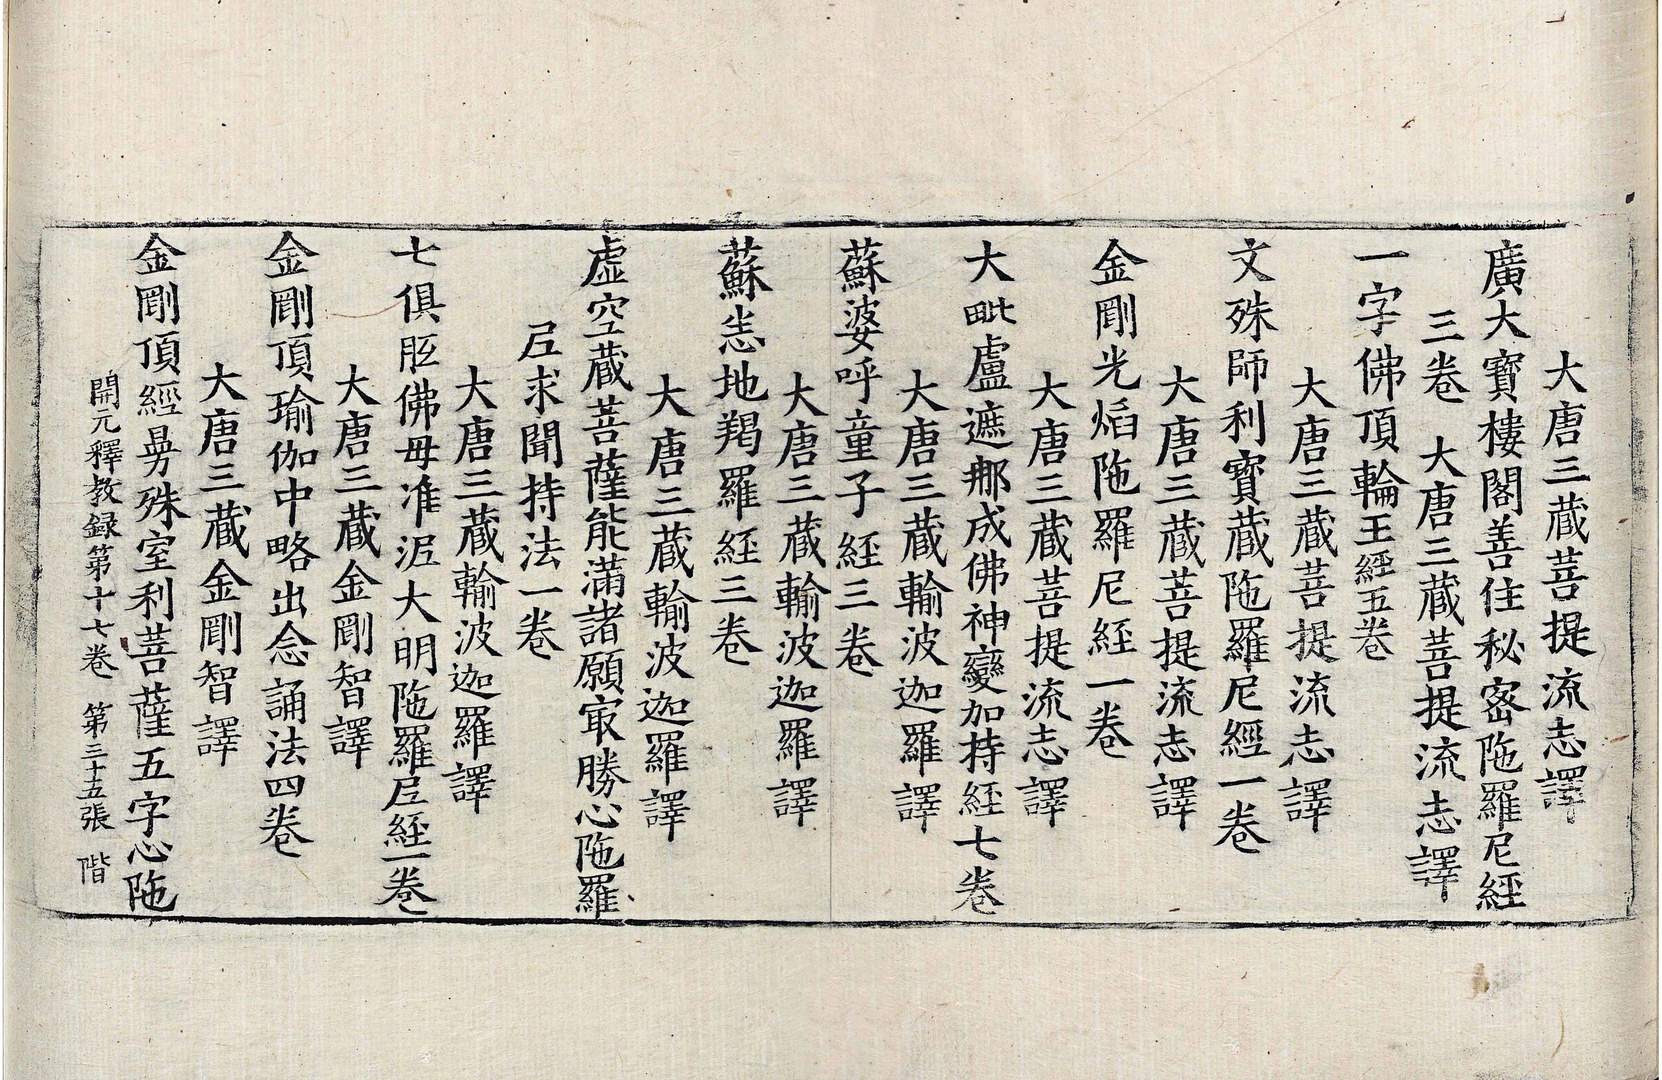 大唐三藏菩提流志譯
廣大寶樓閣善住秘密陁羅尼經
三卷　大唐三藏菩提流志譯
一字佛頂輪王經五卷
大唐三藏菩提流志譯
文殊師利寶藏陁羅尼經一卷
大唐三藏菩提流志譯
金剛光焰陁羅尼経一卷
大唐三藏菩提流志譯
大毗盧遮那成佛神變加持経七卷
大唐三藏輸波迦羅譯
蘇婆呼童子経三卷
大唐三藏輸波迦羅譯
蘇悉地羯羅経三卷
大唐三藏輸波迦羅譯
虛空藏菩薩能滿諸願㝡勝心陁羅
尼求聞持法一卷
大唐三藏輸波迦羅譯
七俱胝佛母准泥大明陁羅尼経一卷
大唐三藏金剛智譯
金剛頂瑜伽中略出念誦法四卷
大唐三藏金剛智譯
金剛頂經曼殊室利菩薩五字心陁
開元釋教録第十七卷　第三十五張　階